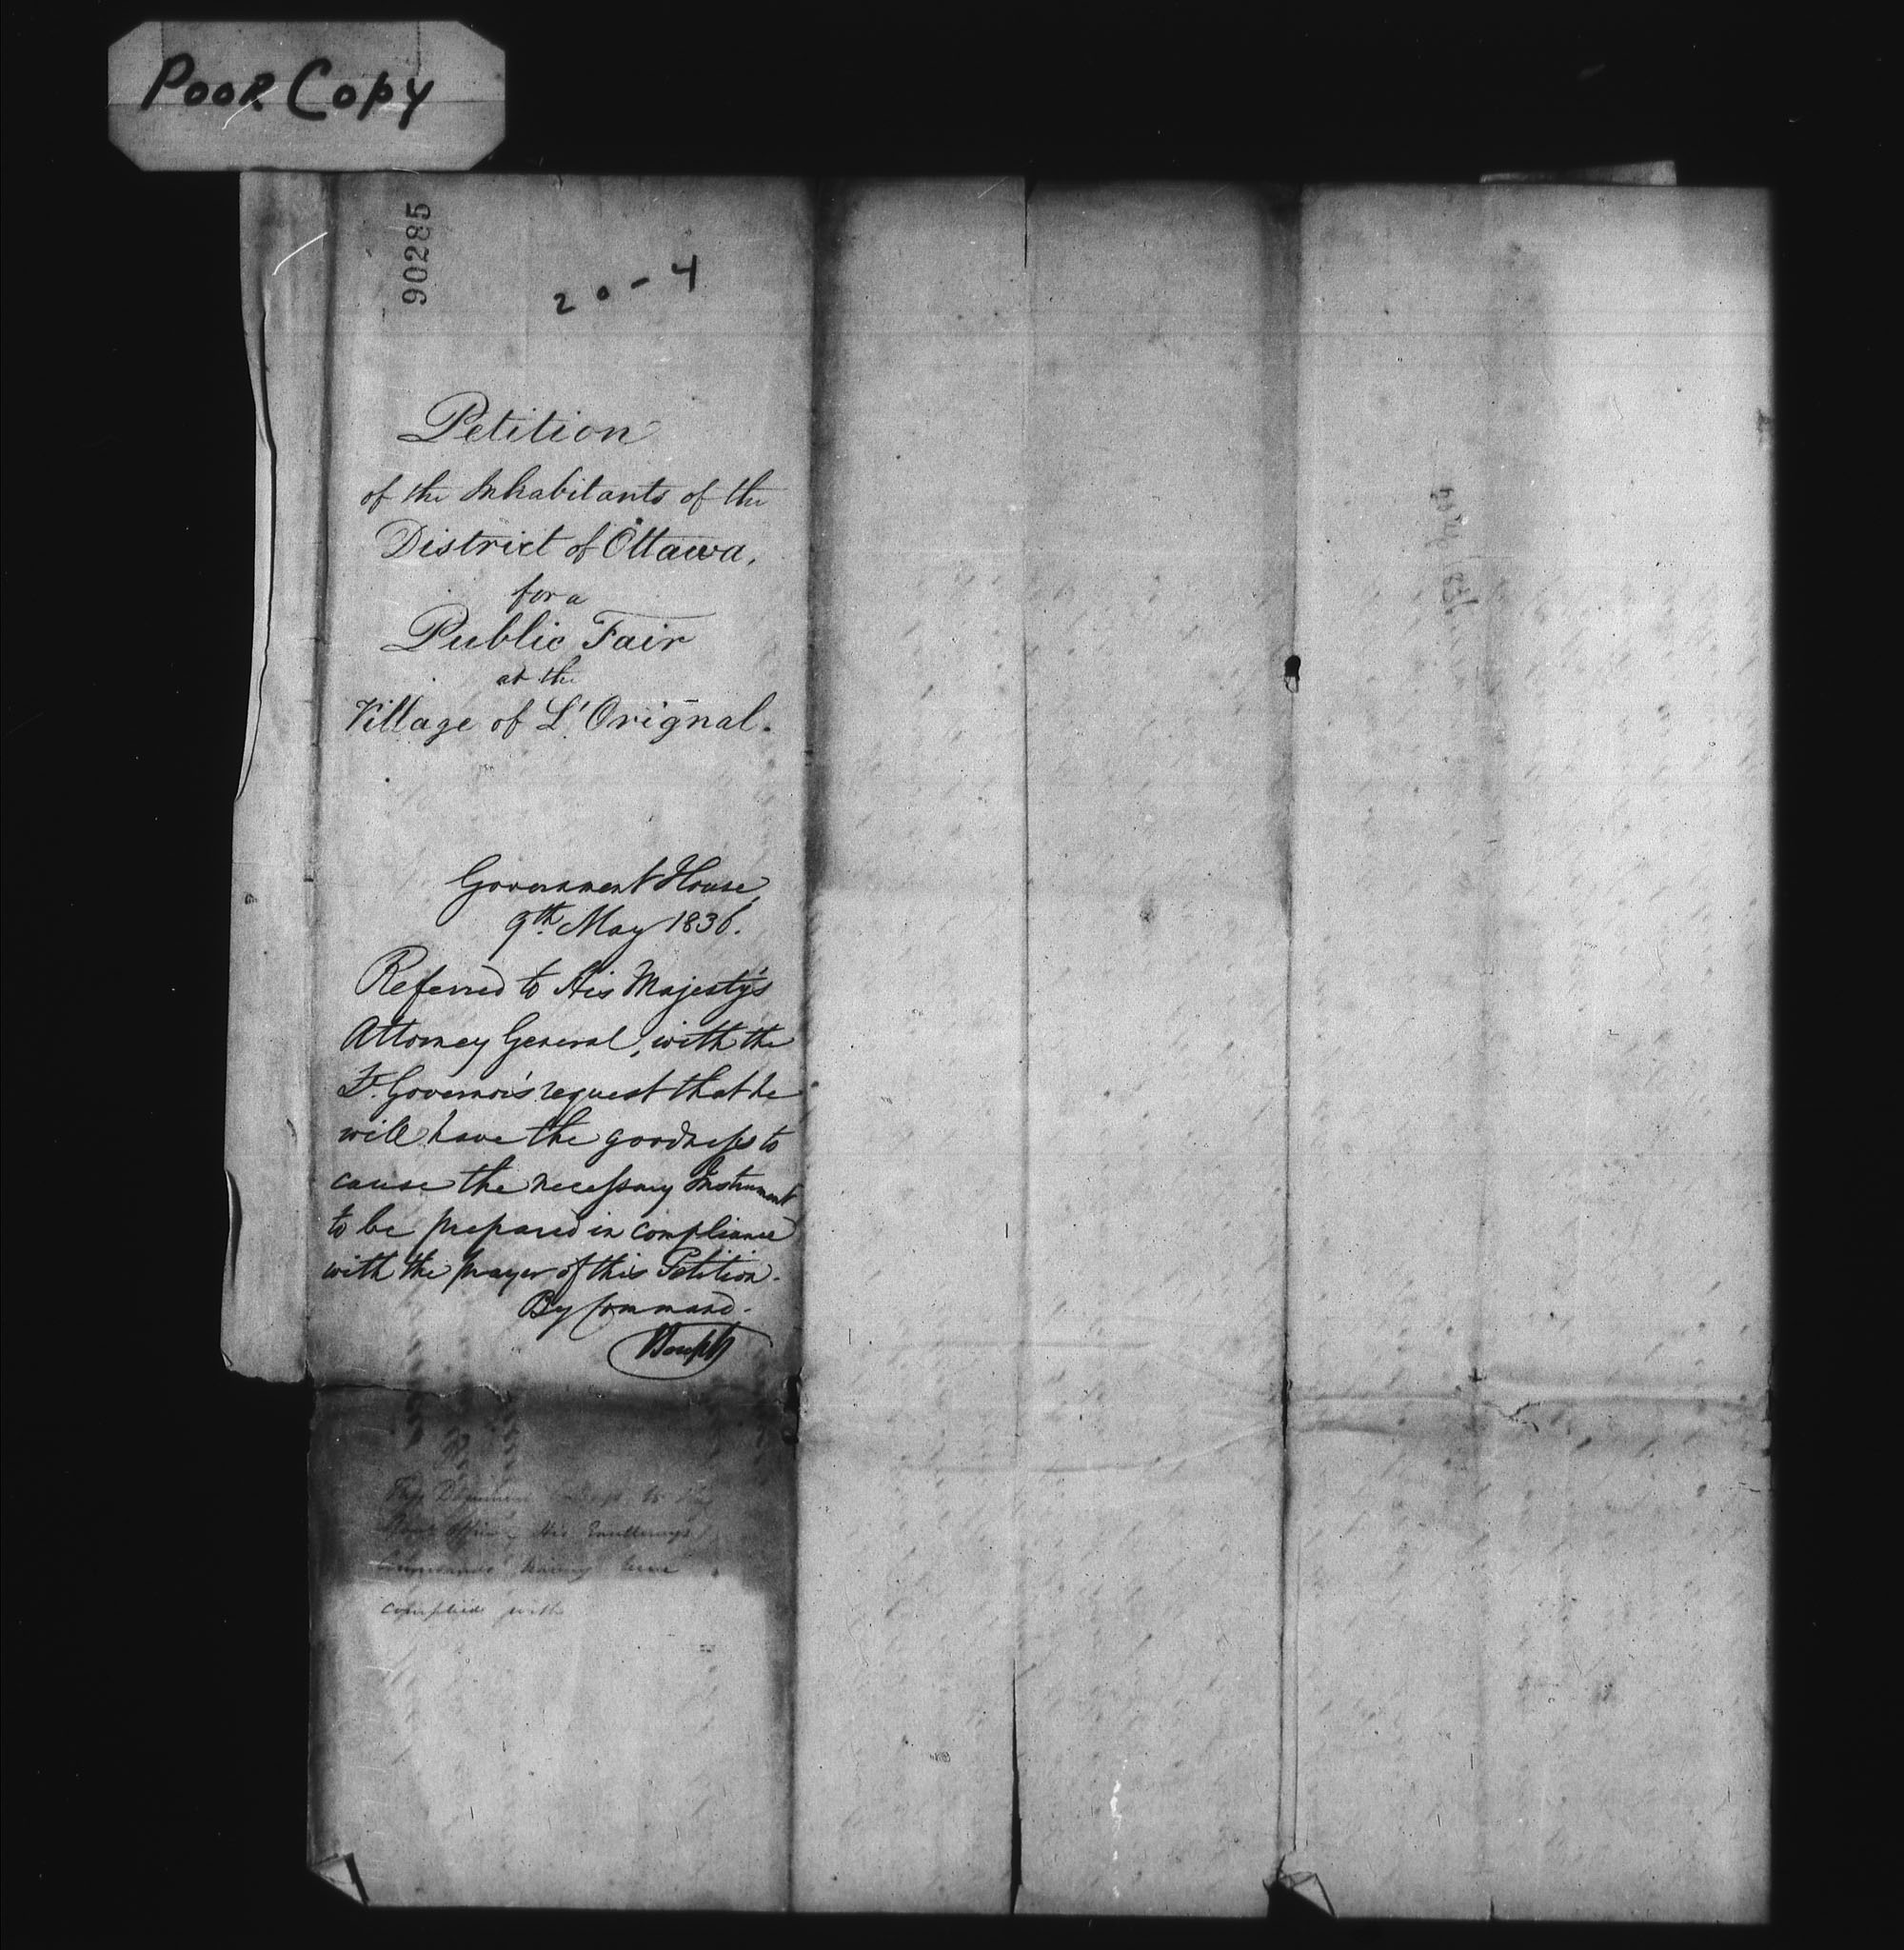 Poor Copy
90285
20-4
Petition
of the Inhabitants of the
District of Ottawa,
for a
Public Fair
at the
Village of L'Orignal.
Government House,
9th. May 1836.
Referred to His Majesty's
Attorney General, with the
Lt. Governor's request that he
will have the goodness to
cause the necessary Instrument
to be prepared in compliance
with the prayer of this Petition.
By Command.
J Joseph
to the
Office, His Excellency's
Commands having been
complied with